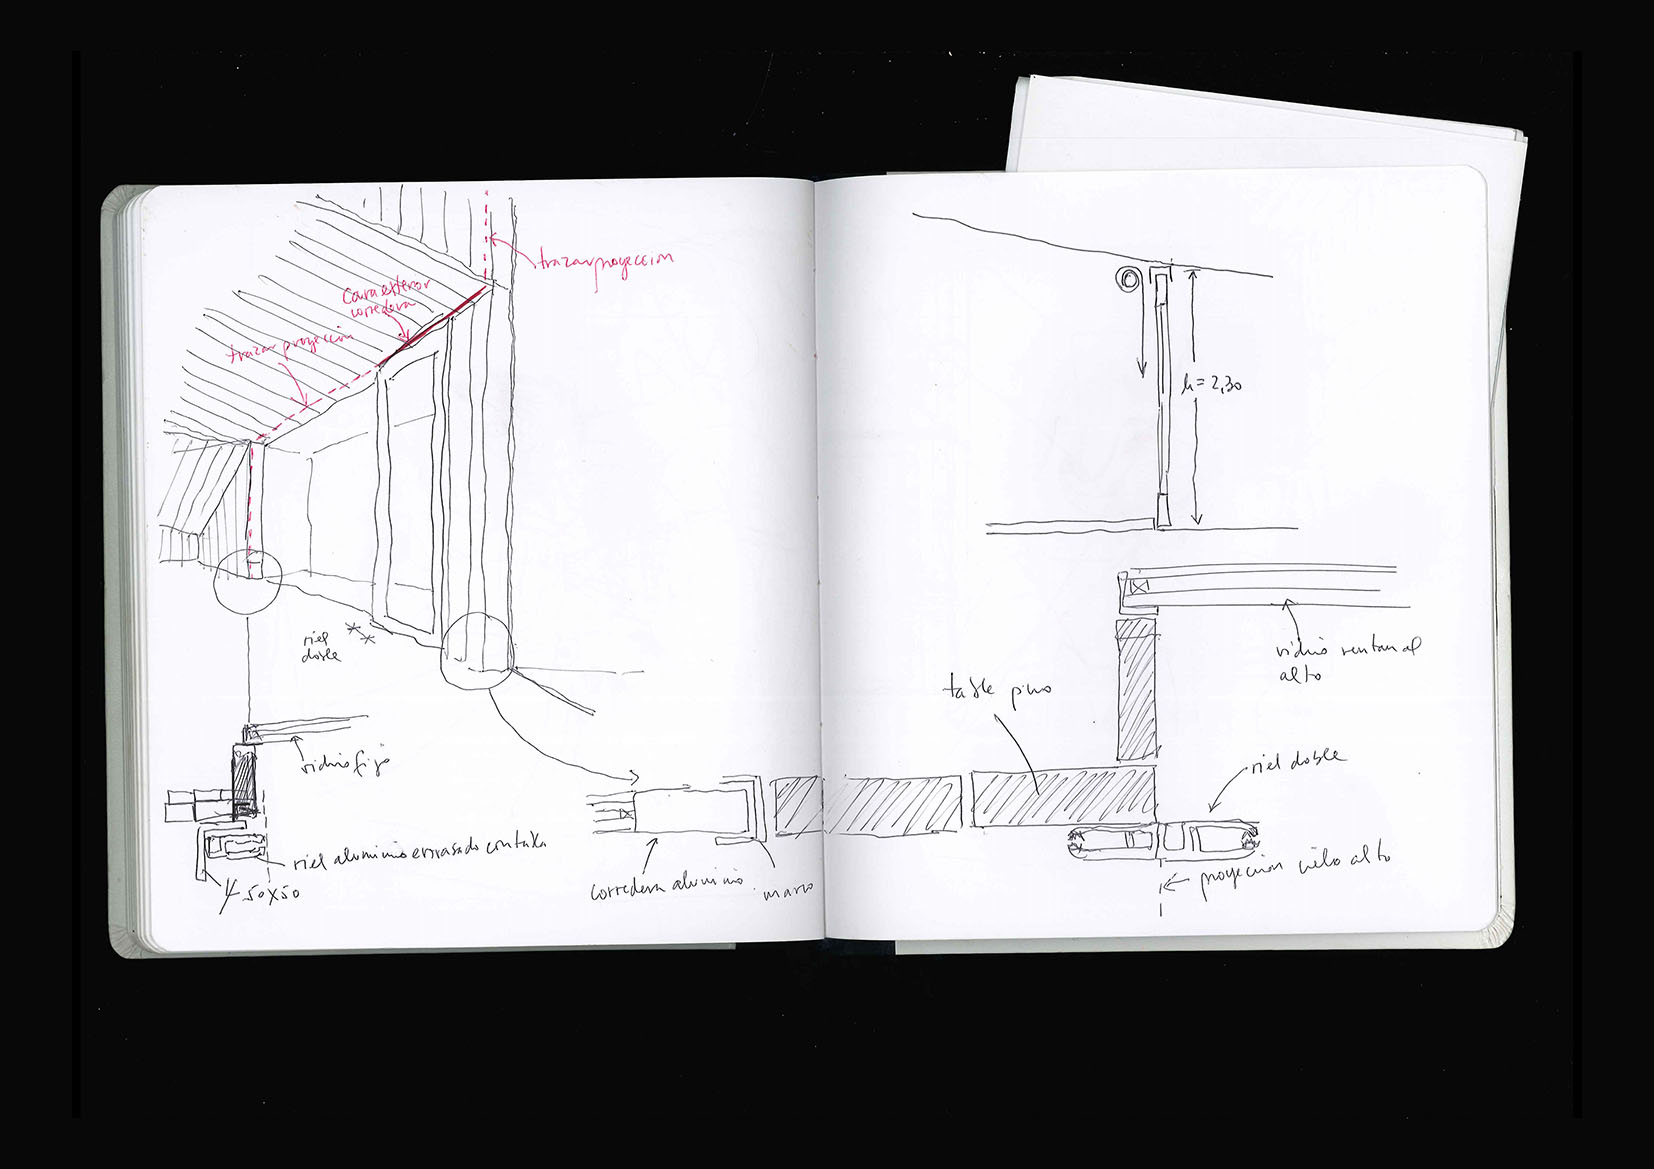 trazar proyeccion
Cara exterior
corredera
trazar proyección
riel
doble
vidrio fijo
riel aluminio enrasado con tabla
50x50
corredera aluminio
marco
h=2,30
vidrio ventanal
alto
tabla pino
riel doble
proyeccion cielo alto